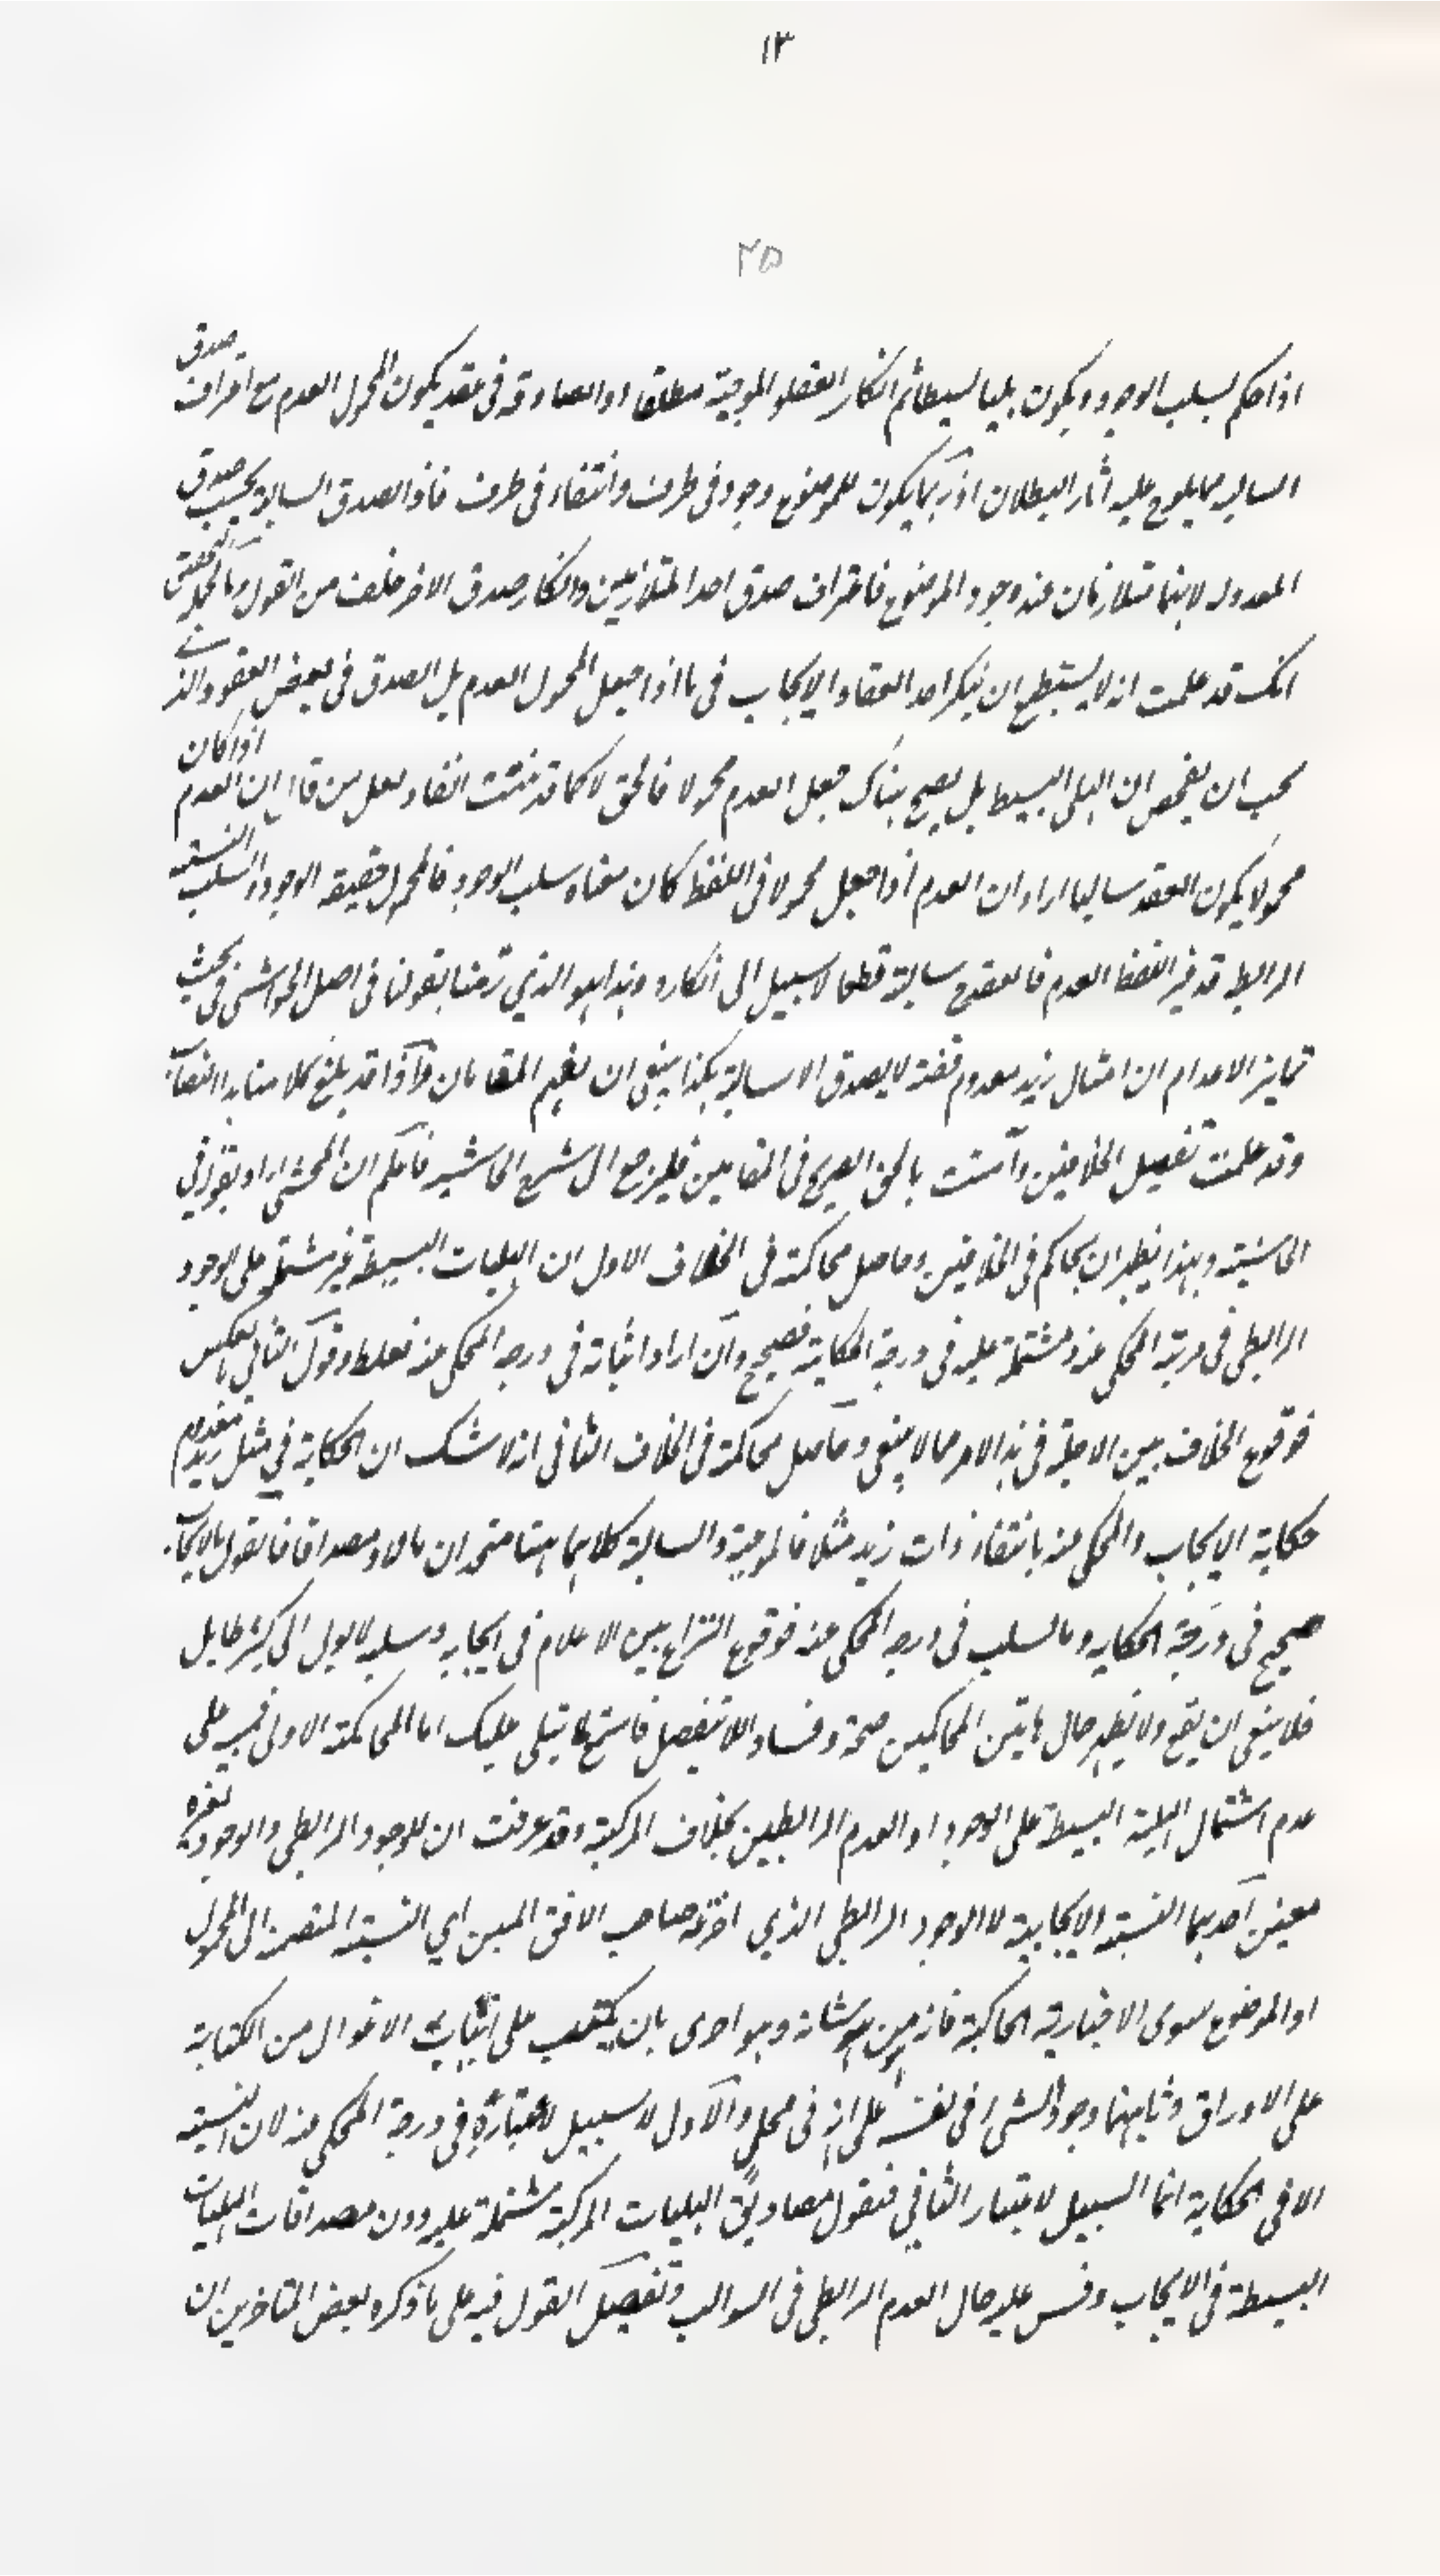 ١٣
٢٥
اذا حكم بسلب الوجود ويكون هليا بسيطا ثم انكار العقد الموجبة مطلقا او الصادقة فى عقد يكون المحمول العدم مع اعتراف صدق
السالبة مما يلوح عليه آثار البطلان اذ ربما يكون للموضوع وجود فى ظرف وانتفاء فى ظرف فاذا صدق السالبة يجب صدق
المعدولة لانهما متلازمان عند وجود الموضوع فاعتراف صدق احد المتلازمين وانكار صدق الاخر خلف من القول وبالجملة
انك قد علمت انه لا يستطيع ان ينكر احد انعقاد الايجاب فى ما اذا جعل المحمول العدم بل الصدق فى بعض العقود والذى
يجب ان يفحص ان الهلى البسيط هل يصح هناك جعل العدم محمولا فالحق لا كما قد دريت انفا ولعل من قال ان العدم اذا كان
محمولا يكون العقد سالبا اراد ان العدم اذا جعل محمولا فى اللفظ كان معناه سلب الوجود فالمحمول حقيقة الوجود والسلب النسبة
الرابط قد غير اللفظ العدم فالعقد ح سالبة قطعا لا سبيل الى انكاره وهذا هو الذي رمنا بقولنا فى اصل الحواشى فى بحث
تمايز الاعدام ان امثال زيد معدوم قضية لا يصدق الا سالبة هكذا ينبغى ان يفهم المقامان واذا قد بلغ كلامنا هذا النصاب
وقد علمت تفصيل الخلافين وآمنت بالحق الصريح فى المقامين فليرجع الى شرح الحاشية فاعلم ان المحشى اراد بقوله فى
الحاشية وبهذا يظهر ان يحاكم فى الخلافين وحاصل محاكمته فى الخلاف الاول ان الهليات البسيطة غير مشتملة على الوجود
الرابطى فى مرتبة المحكى عنه ومشتملة عليه فى درجة الحكاية فصحيح وان اراد اثباته فى درجة المحكى عنه فغلط وقول الثانى بالعكس
فوقوع الخلاف بين الاجلة فى هذا الامر مما لا ينبغى وحاصل محاكمة فى الخلاف الثانى انه لا شك ان الحكاية فى مثل زيد معدوم
حكاية الايجاب والمحكى عنه بانتفاء ذات زيد مثلا فالموجبة والسالبة كلاهما ههنا متحدان مالا ومصداقا فالقول بالايجاب
صحيح فى درجة الحكاية وبالسلب فى درجة المحكى عنه فوقوع النزاع بين الاعلام فى ايجابه وسلبه لا يول الى كثير طايل
فلا ينبغى ان يقع ولا يظهر حال هاتين المحاكمتين صحة وفسادا الا بتفصيل فاستمع لما يتلى عليك اما المحاكمة الاولى فمبنية على
عدم اشتمال الهلية البسيطة على الوجود او العدم الرابطيين بخلاف المركبة وقد عرفت ان للوجود الرابطى والوجود لغيره
معنيين احدهما النسبة الايجابية لا الوجود الرابطى الذي اخترعه صاحب الافق المبين اي النسبة المنضمة الى المحمول
او الموضوع سوى الاخبارية الحاكية فانه من هوساته وهو احرى بان يكتب على انياب الاغوال من الكتابة
على الاوراق وثانيهما وجود الشىء فى نفسه على انه فى محل والاول لا سبيل لاعتباره فى درجة المحكى عنه لان النسبة
الا فى الحكاية انما السبيل لاعتبار الثاني فنقول مصاديق الهليات المركبة مشتملة عليه دون مصداقات الهليات
البسيطة فى الايجاب وقس عليه حال العدم الرابطى فى السوالب وتفصيل القول فيه على ما ذكره بعض المتاخرين ان